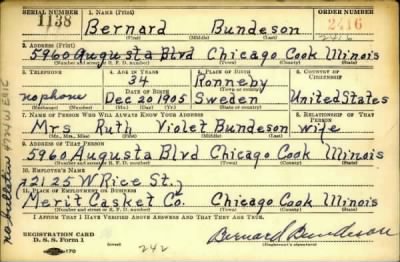 SERIAL NUMBER 1. NAME (Print) ORDER NUMBER
1138 Bernard Bundeson 2416
(First) (Middle) (Last) 2416
2. ADDRESS (Print)
5960 Augusta Blvd Chicago Cook Illinois
(Number and street or R. F. D. number) (Town) (County) (State)
3. TELEPHONE 4. AGE IN YEARS 5. PLACE OF BIRTH 6. COUNTRY OF CITIZENSHIP
34 Ronneby
DATE OF BIRTH
no phone Dec 20 1905 Sweden United States
(Exchange) (Number) (Mo.) (Day) (Yr.) (State or country)
7. NAME OF PERSON WHO WILL ALWAYS KNOW YOUR ADDRESS 8. RELATIONSHIP OF THAT PERSON
Mrs Ruth Violet Bundeson wife
(Mr., Mrs., Miss) (First) (Middle) (Last)
9. ADDRESS OF THAT PERSON
5960 Augusta Blvd Chicago Cook Illinois
(Number and street or R. F. D. number) (Town) (County) (State)
10. EMPLOYER'S NAME
2125 W Rice St.
11. PLACE OF EMPLOYMENT OR BUSINESS
Merit Casket Co. Chicago Cook Illinois
(Number and street or R. F. D. number) (Town) (County) (State)
I AFFIRM THAT I HAVE VERIFIED ABOVE ANSWERS AND THAT THEY ARE TRUE.
REGISTRATION CARD
D. S. S. Form 1 242 Bernard Bundeson
(Registrant's signature)